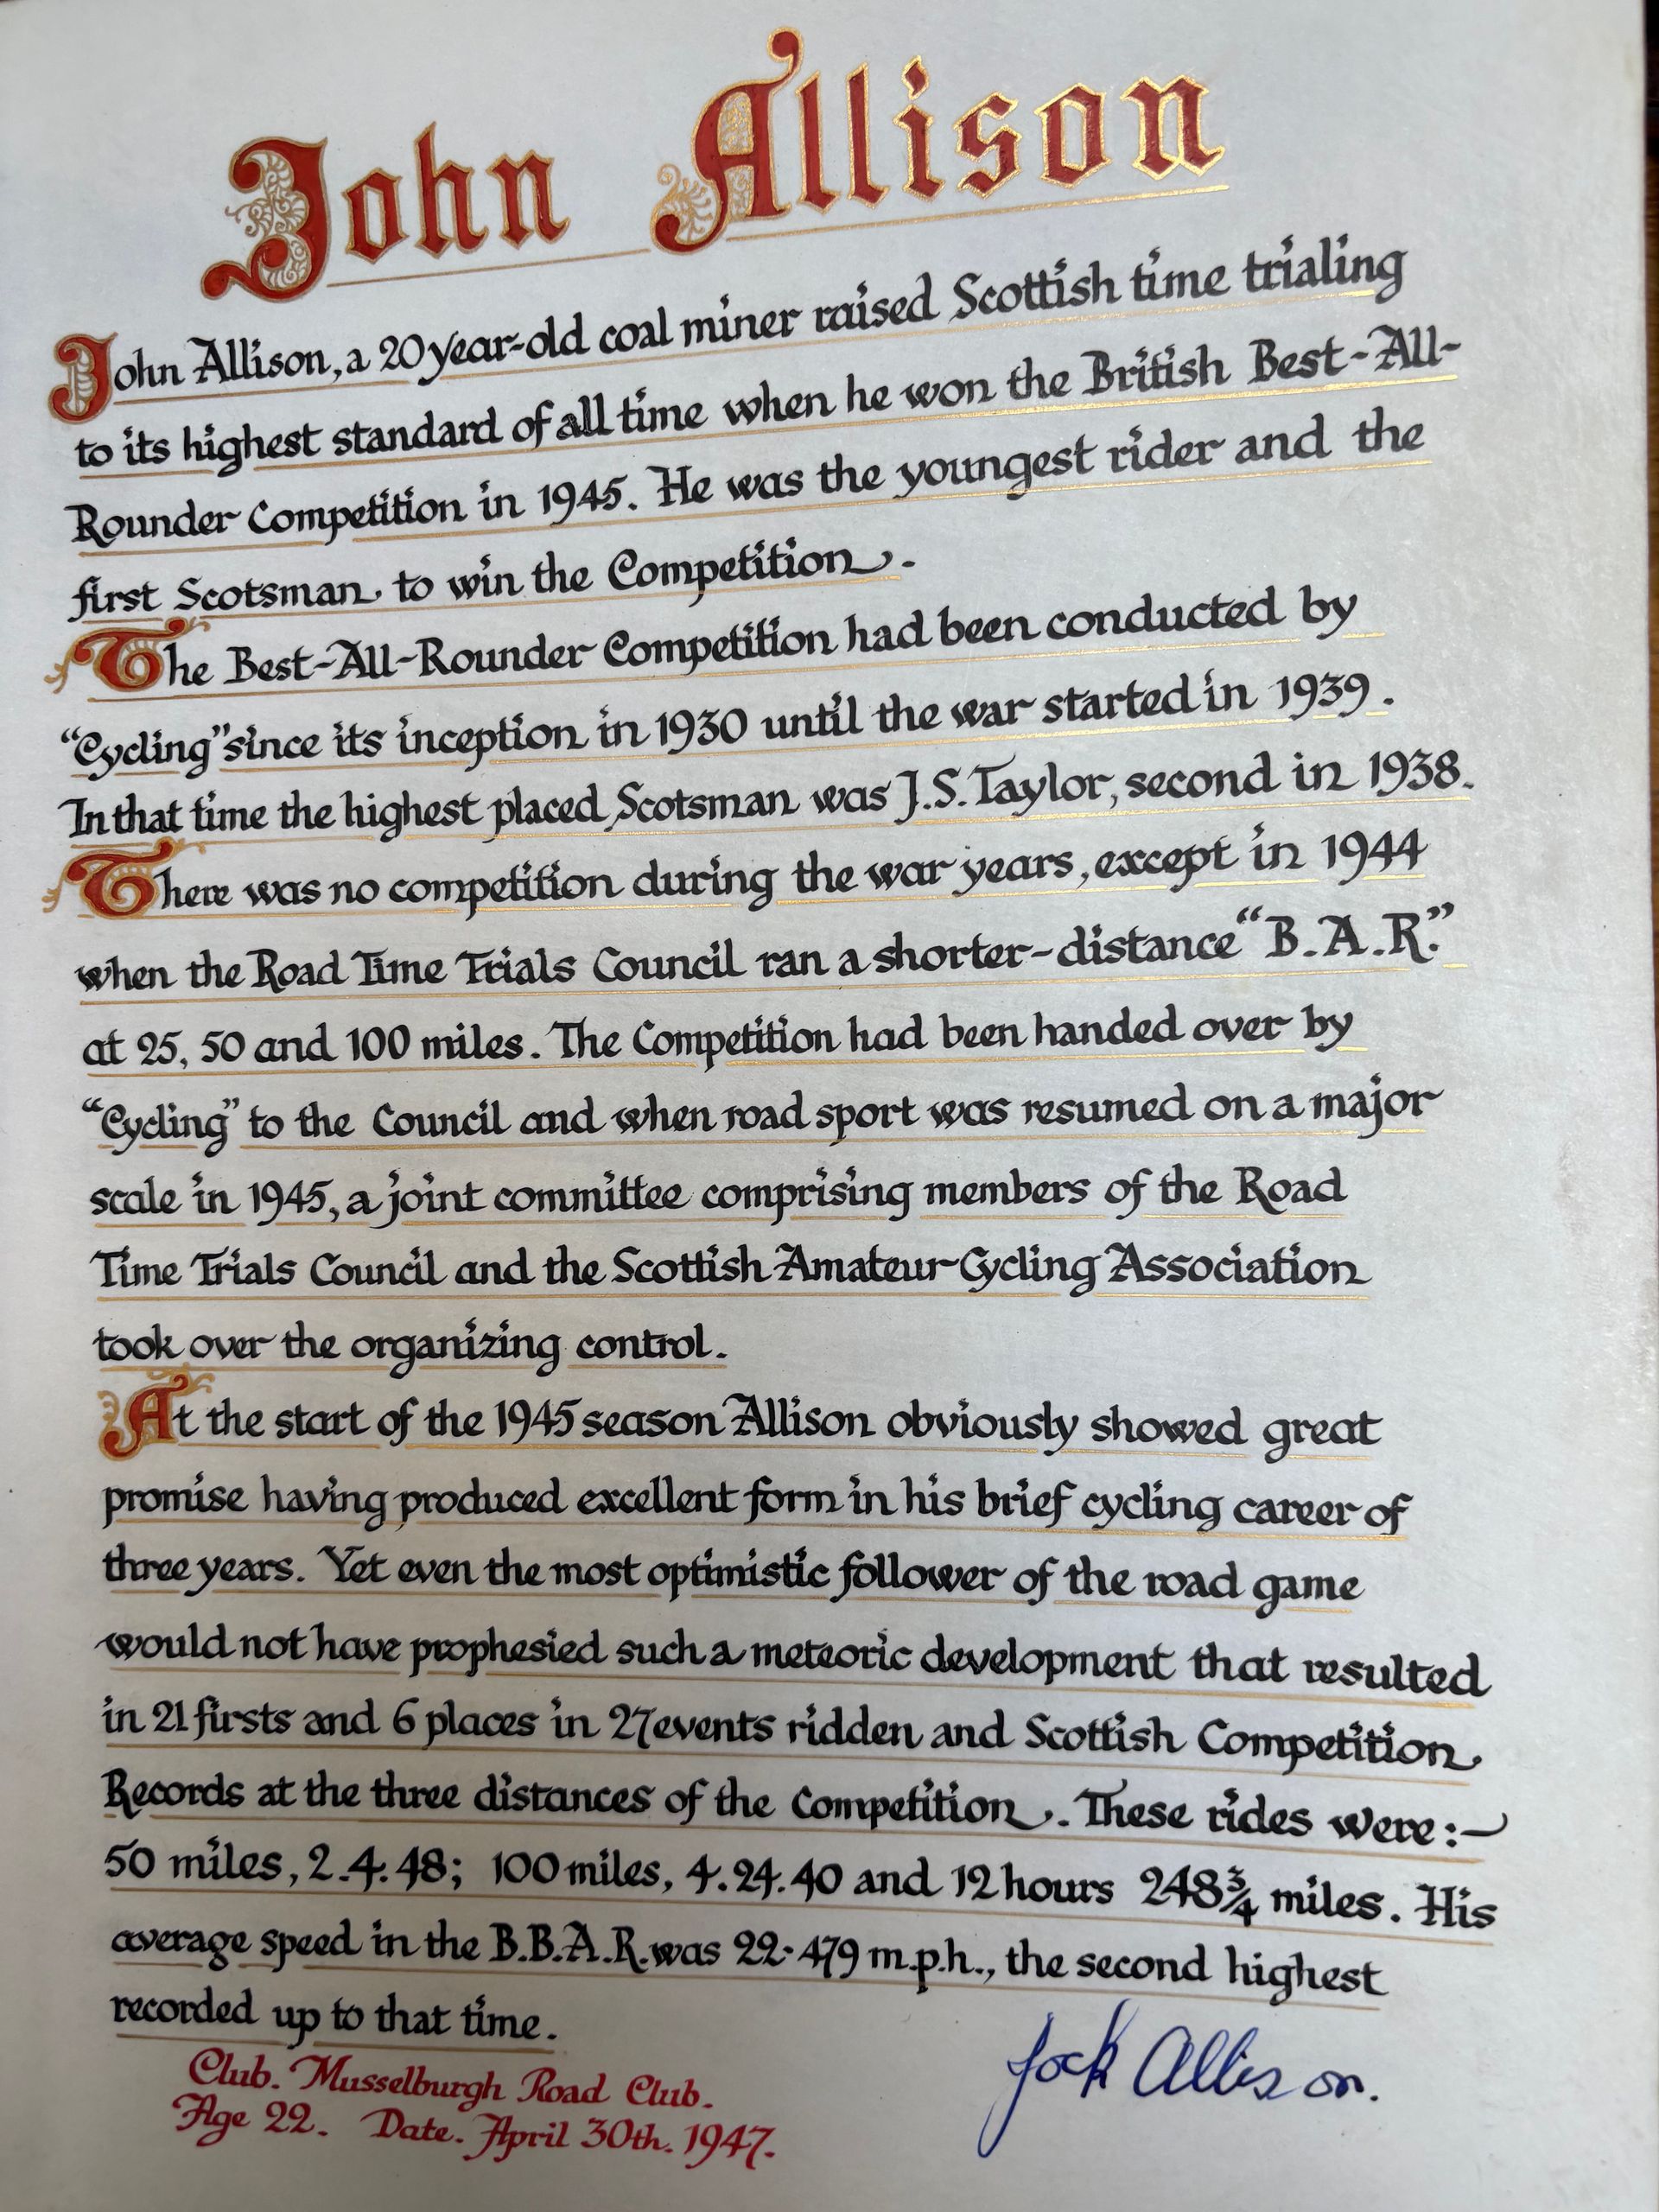 John Allison
John Allison, a 20 year-old coal miner raised Scottish time trialing
to its highest standard of all time when he won the British Best-All-
Rounder Competition in 1945. He was the youngest rider and the
first Scotsman to win the Competition.
The Best-All-Rounder Competition had been conducted by
“Cycling” since its inception in 1930 until the war started in 1939.
In that time the highest placed Scotsman was J.S. Taylor, second in 1938.
There was no competition during the war years, except in 1944
when the Road Time Trials Council ran a shorter-distance “B.A.R.”
at 25, 50 and 100 miles. The Competition had been handed over by
“Cycling” to the Council and when road sport was resumed on a major
scale in 1945, a joint committee comprising members of the Road
Time Trials Council and the Scottish Amateur Cycling Association
took over the organizing control.
At the start of the 1945 season Allison obviously showed great
promise having produced excellent form in his brief cycling career of
three years. Yet even the most optimistic follower of the road game
would not have prophesied such a meteoric development that resulted
in 21 firsts and 6 places in 27 events ridden and Scottish Competition
Records at the three distances of the Competition. These rides were:-
50 miles, 2.4.48; 100 miles, 4.24.40 and 12 hours 248¾ miles. His
average speed in the B.B.A.R. was 22·479 m.p.h., the second highest
recorded up to that time.
Jock Allison.
Club. Musselburgh Road Club.
Age 22. Date. April 30th. 1947.